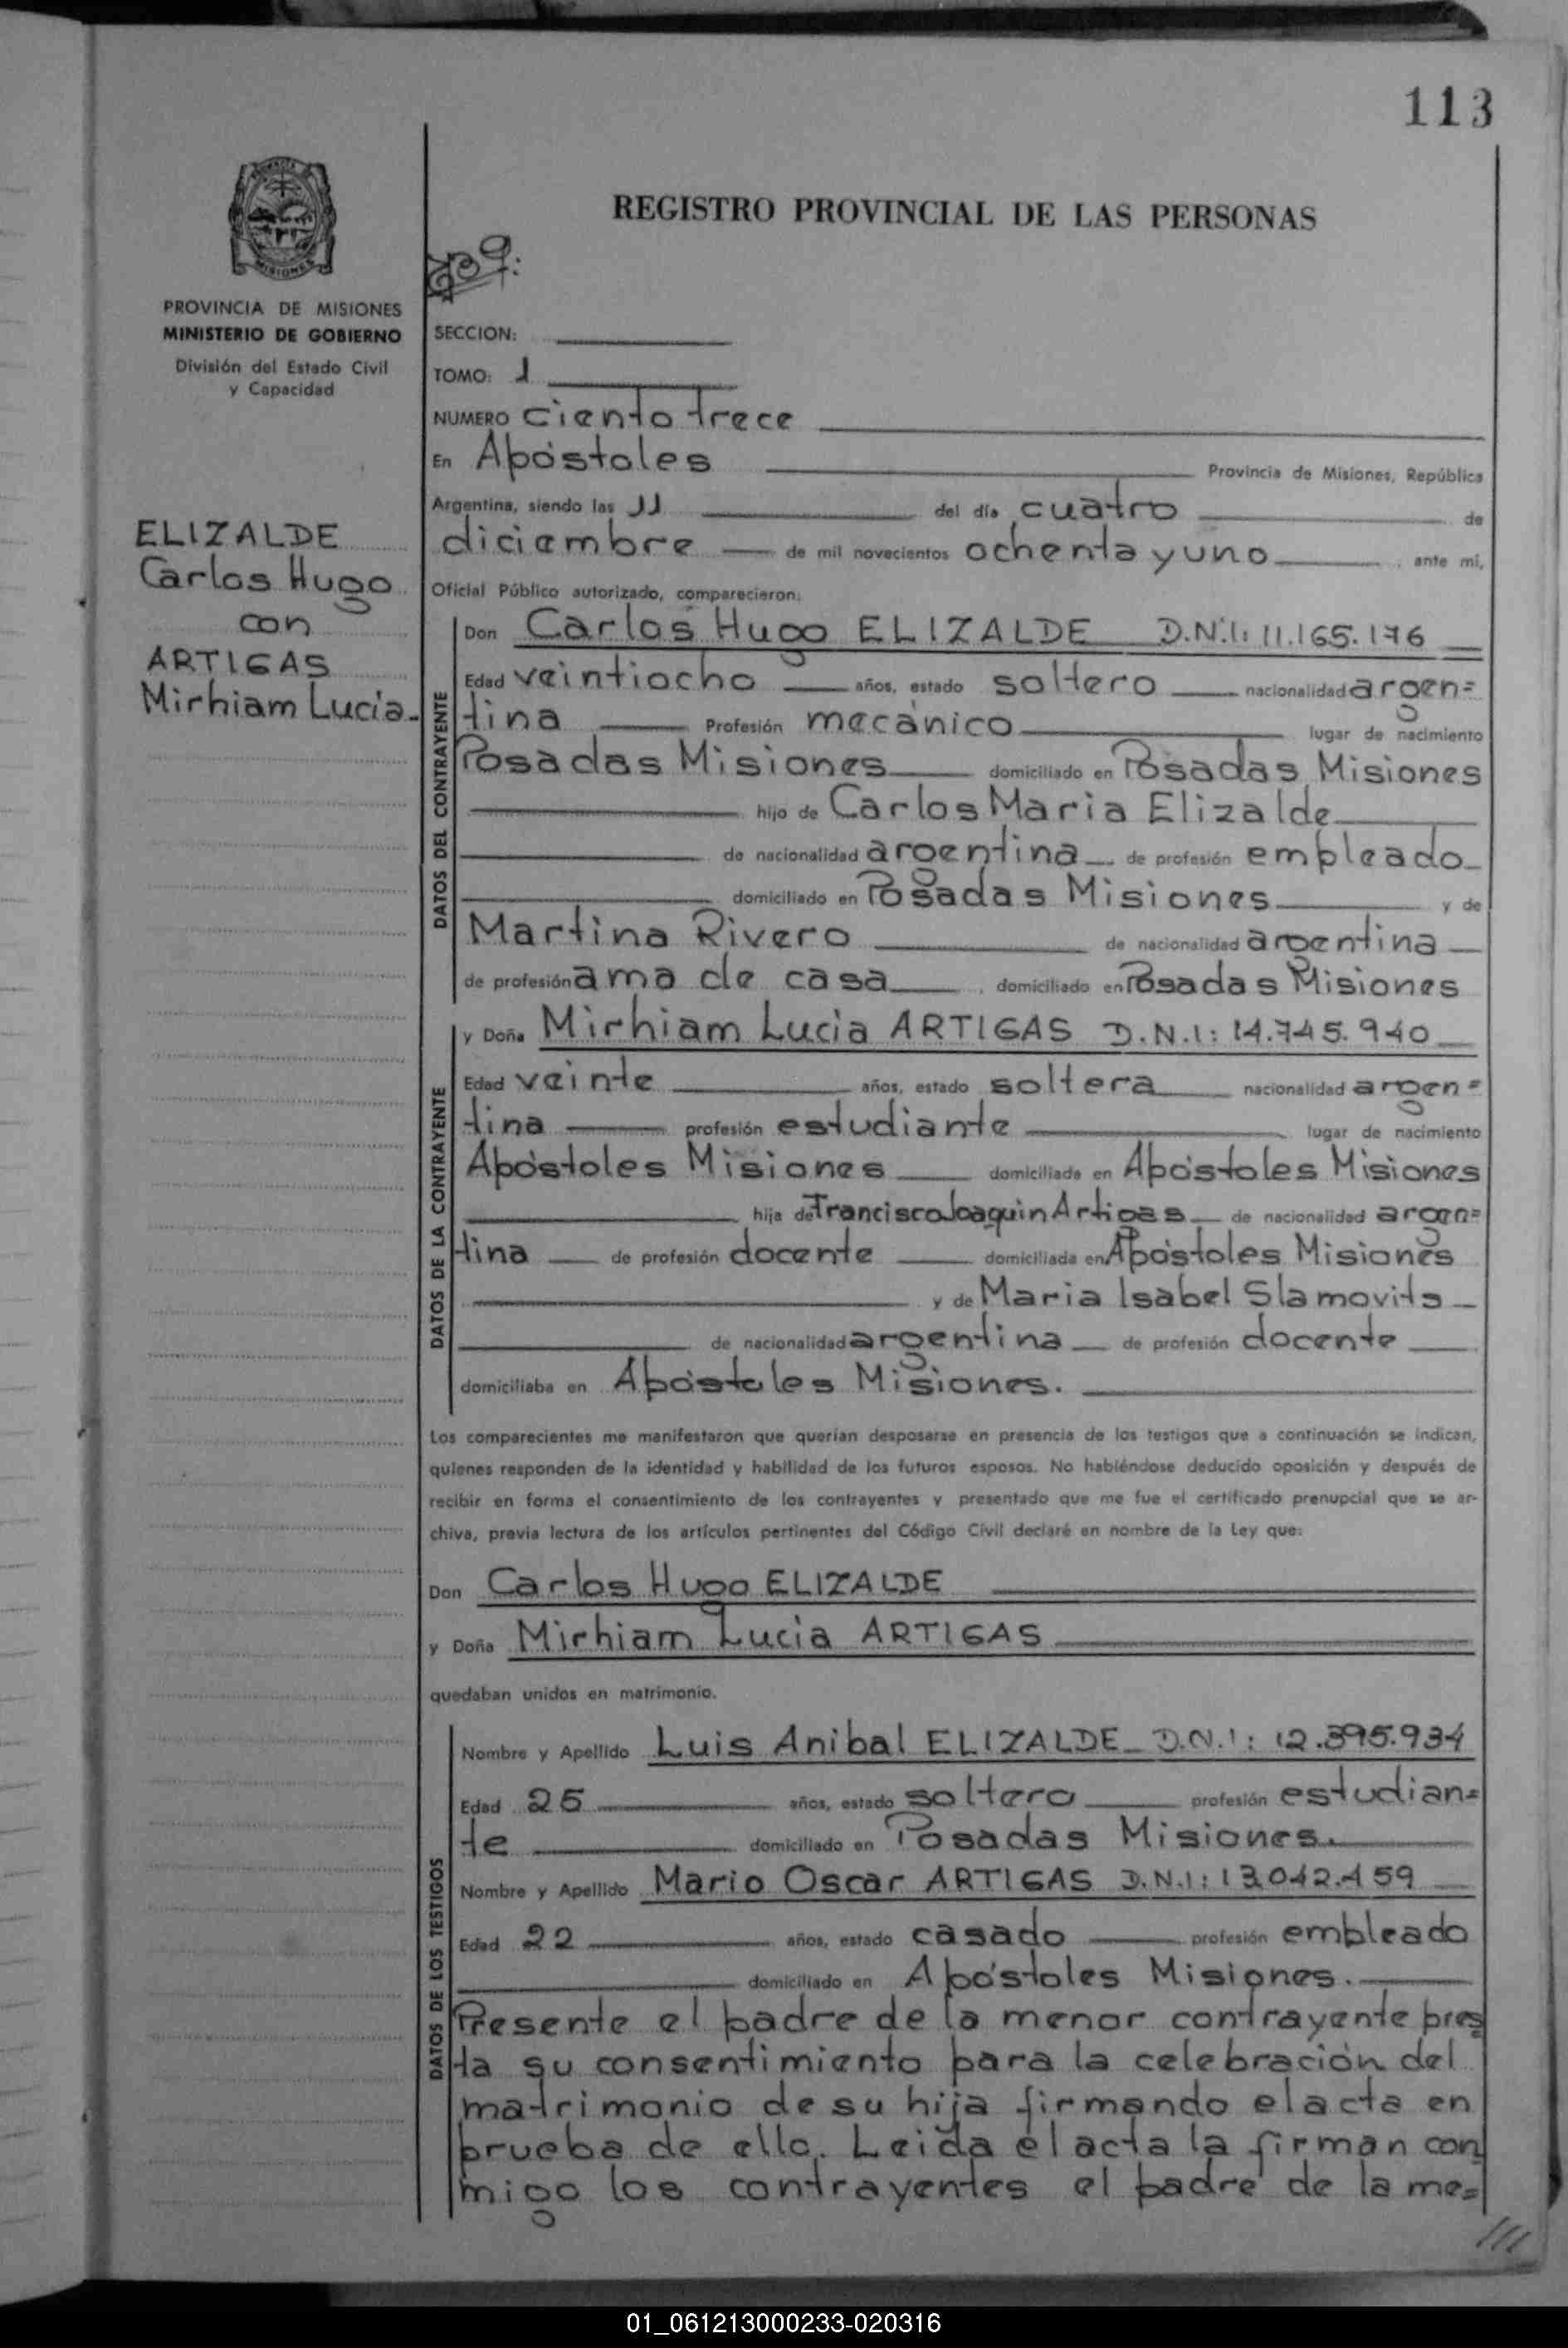 113
REGISTRO PROVINCIAL DE LAS PERSONAS
MISIONES
PROVINCIA DE MISIONES
MINISTERIO DE GOBIERNO
División del Estado Civil
y Capacidad
ELIZALDE
Carlos Hugo
con
ARTIGAS
Mirhiam Lucía
SECCION:
TOMO: 1
NUMERO ciento trece
En Apóstoles Provincia de Misiones, República
Argentina, siendo las 11 del día cuatro de
diciembre de mil novecientos ochenta y uno, ante mi,
Oficial Público autorizado, comparecieron:
DATOS DEL CONTRAYENTE
Don Carlos Hugo ELIZALDE D.N.I: 11.165.176
Edad veintiocho años, estado soltero nacionalidad argen=
tina Profesión mecánico lugar de nacimiento
Posadas Misiones domiciliado en Posadas Misiones
hijo de Carlos Maria Elizalde
de nacionalidad argentina de profesión empleado
domiciliado en Posadas Misiones y de
Martina Rivero de nacionalidad argentina
de profesión ama de casa, domiciliado en Posadas Misiones
DATOS DE LA CONTRAYENTE
y Doña Mirhiam Lucía ARTIGAS D.N.I: 14.745.940
Edad veinte años, estado soltera nacionalidad argen=
tina profesión estudiante lugar de nacimiento
Apóstoles Misiones domiciliada en Apóstoles Misiones
hija de Francisco Joaquin Artigas de nacionalidad argen=
tina de profesión docente domiciliada en Apóstoles Misiones
y de Maria Isabel Slamovits
de nacionalidad argentina de profesión docente
domiciliaba en Apóstoles Misiones.
Los comparecientes me manifestaron que querían desposarse en presencia de los testigos que a continuación se indican,
quienes responden de la identidad y habilidad de los futuros esposos. No habiéndose deducido oposición y después de
recibir en forma el consentimiento de los contrayentes y presentado que me fue el certificado prenupcial que se ar-
chiva, previa lectura de los artículos pertinentes del Código Civil declaré en nombre de la Ley que:
Don Carlos Hugo ELIZALDE
y Doña Mirhiam Lucía ARTIGAS
quedaban unidos en matrimonio.
DATOS DE LOS TESTIGOS
Nombre y Apellido Luis Anibal ELIZALDE D.N.I: 12.395.934
Edad 25 años, estado soltero profesión estudian=
te domiciliado en Posadas Misiones.
Nombre y Apellido Mario Oscar ARTIGAS D.N.I: 13.042.459
Edad 22 años, estado casado profesión empleado
domiciliado en Apóstoles Misiones.
Presente el padre de la menor contrayente pres
ta su consentimiento para la celebración del
matrimonio de su hija firmando el acta en
prueba de ello. Leida el acta la firman con
migo los contrayentes el padre de la me=
///
01_061213000233-020316